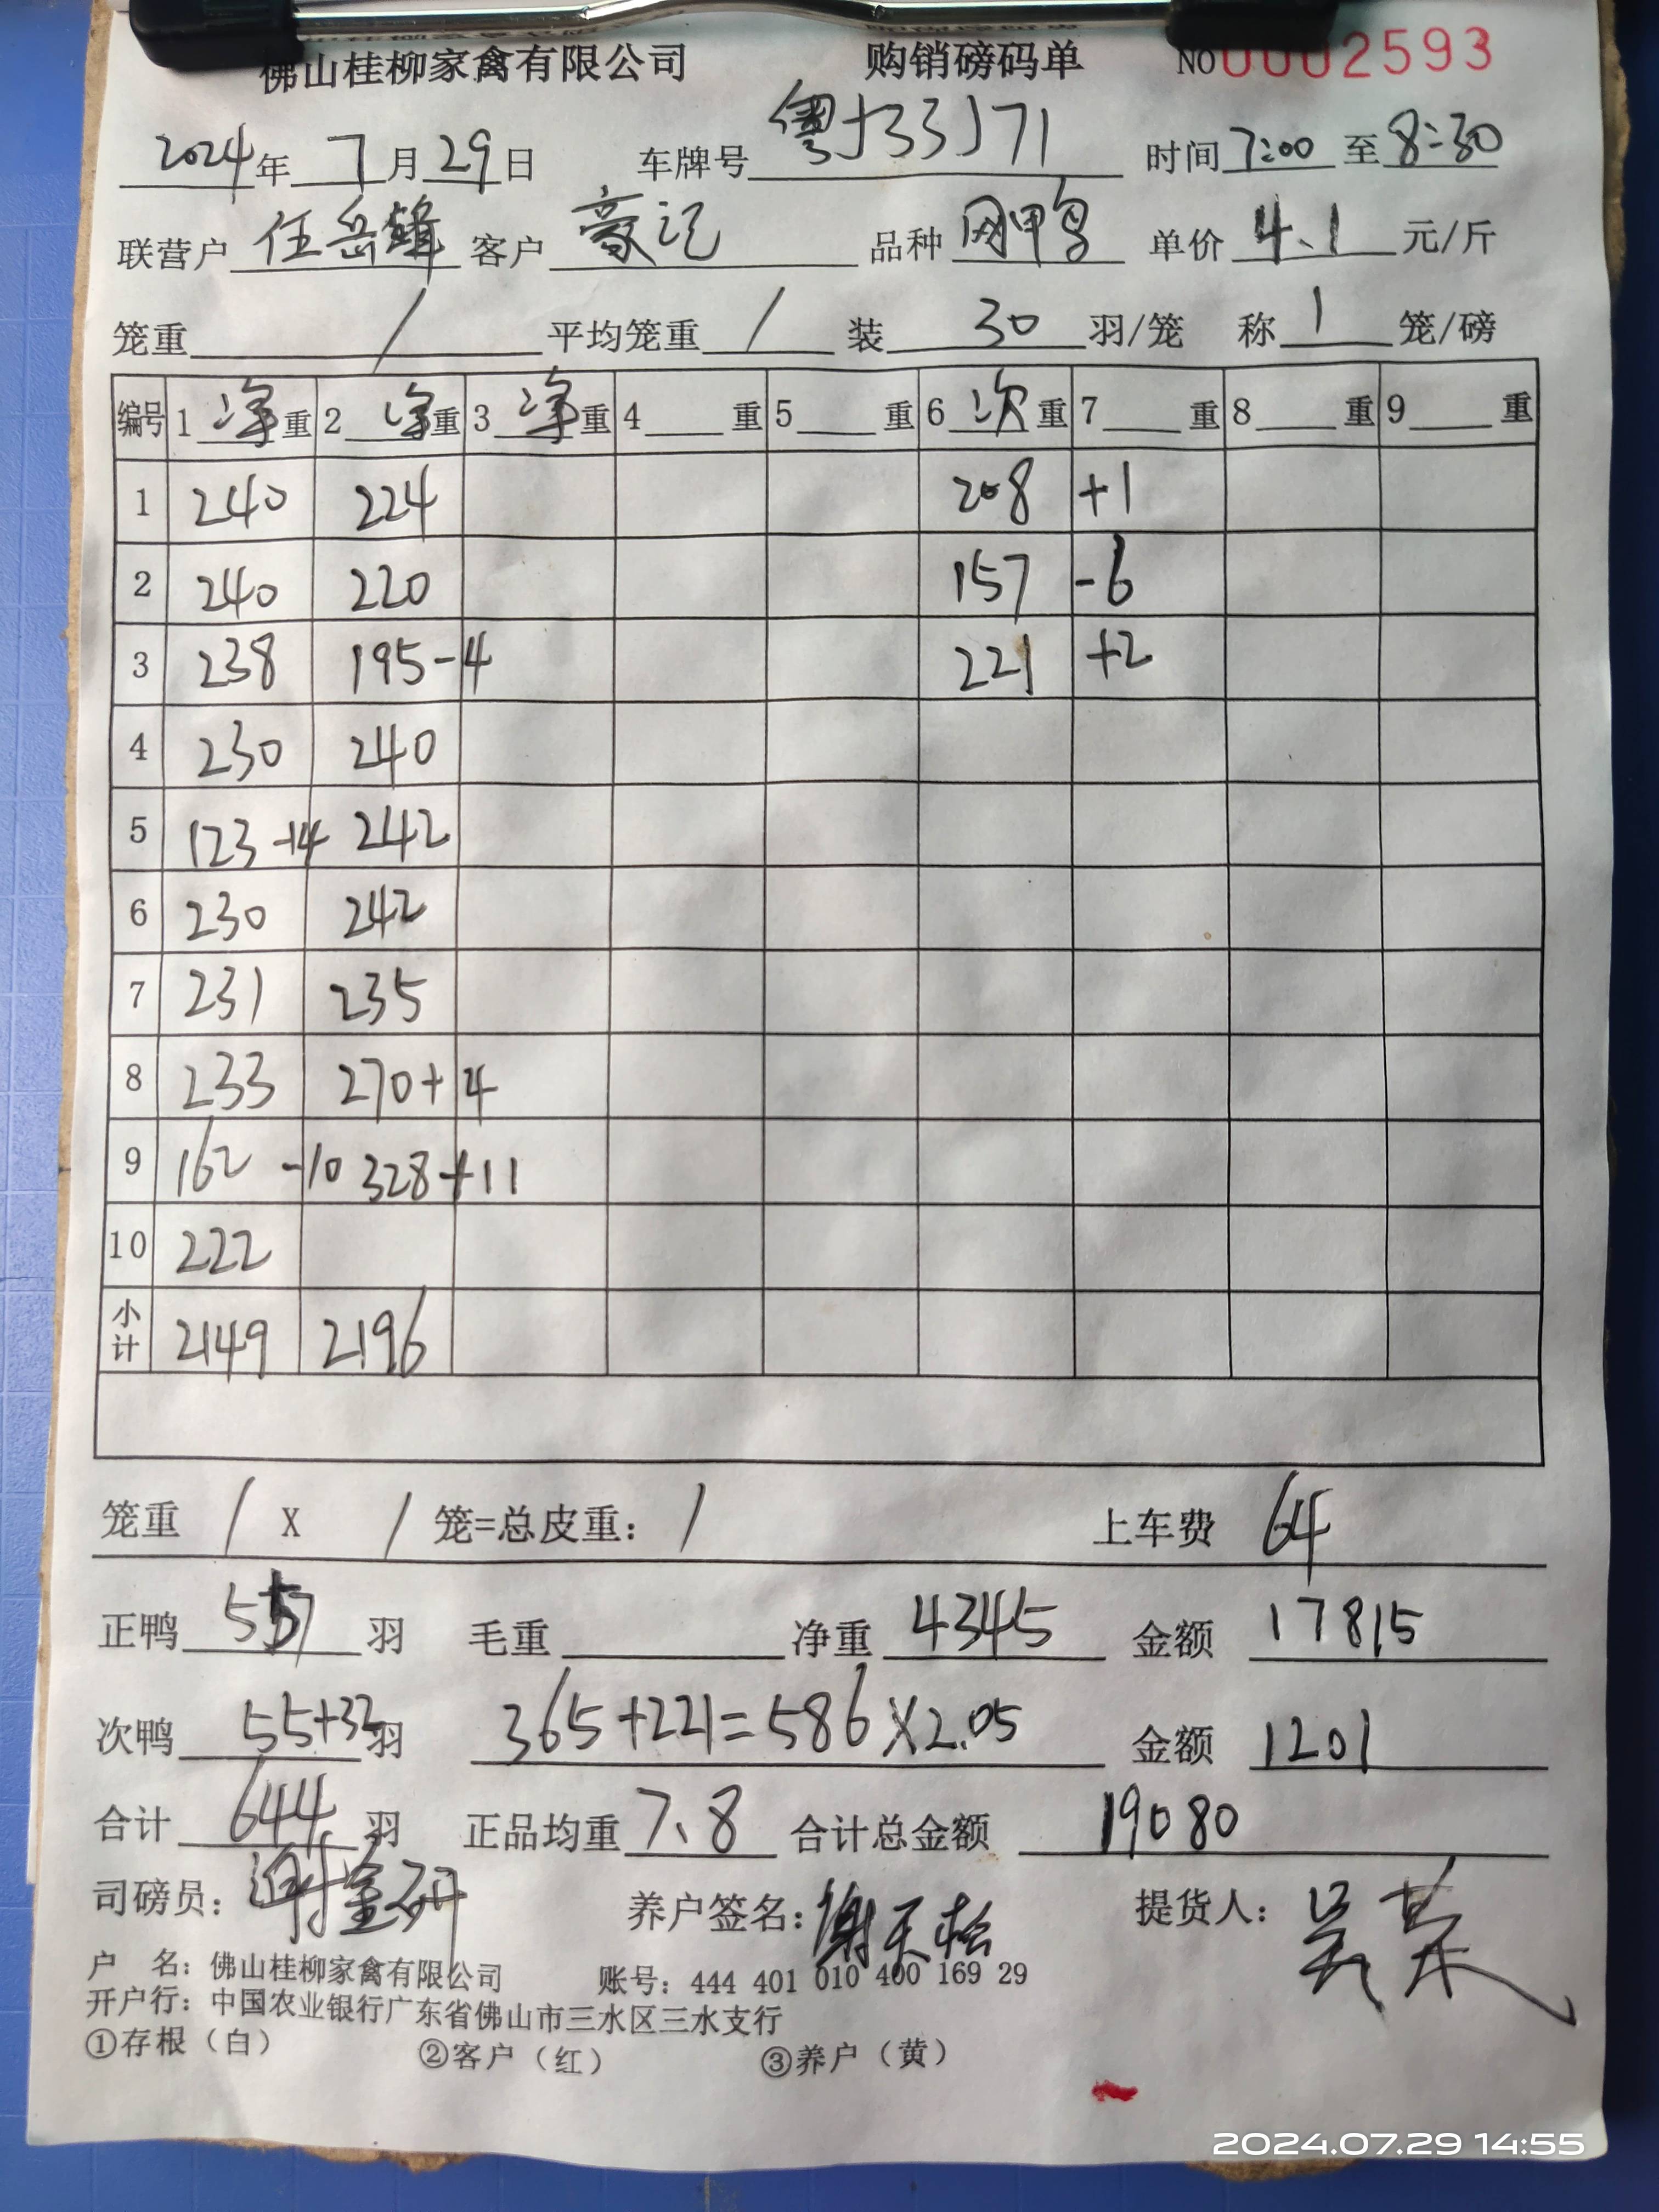 佛山桂柳家禽有限公司 购销磅码单 NO 0002593
2024年 7月29日 车牌号 粤J33J71 时间 7:00 至 8:30
联营户 任岳锋 客户 豪记 品种 网甲鸟 单价 4.1 元/斤
笼重 / 平均笼重 / 装 30 羽/笼 称 1 笼/磅
编号 1 净重 2 净重 3 净重 4 重 5 重 6 次重 7 重 8 重 9 重
1 240 224 208 +1
2 240 220 157 -6
3 238 195-4 221 +2
4 230 240
5 123-14 242
6 230 242
7 231 235
8 233 270+4
9 162 -10 328+11
10 222
小计 2149 2196
笼重 / X / 笼=总皮重: / 上车费 64
正鸭 557 羽 毛重 净重 4345 金额 17815
次鸭 55+32 羽 365+221=586×2.05 金额 1201
合计 644 羽 正品均重 7.8 合计总金额 19080
司磅员: 养户签名: 谢天松 提货人: 吴荣
户 名: 佛山桂柳家禽有限公司 账号: 444 401 010 400 169 29
开户行: 中国农业银行广东省佛山市三水区三水支行
①存根（白） ②客户（红） ③养户（黄）
2024.07.29 14:55